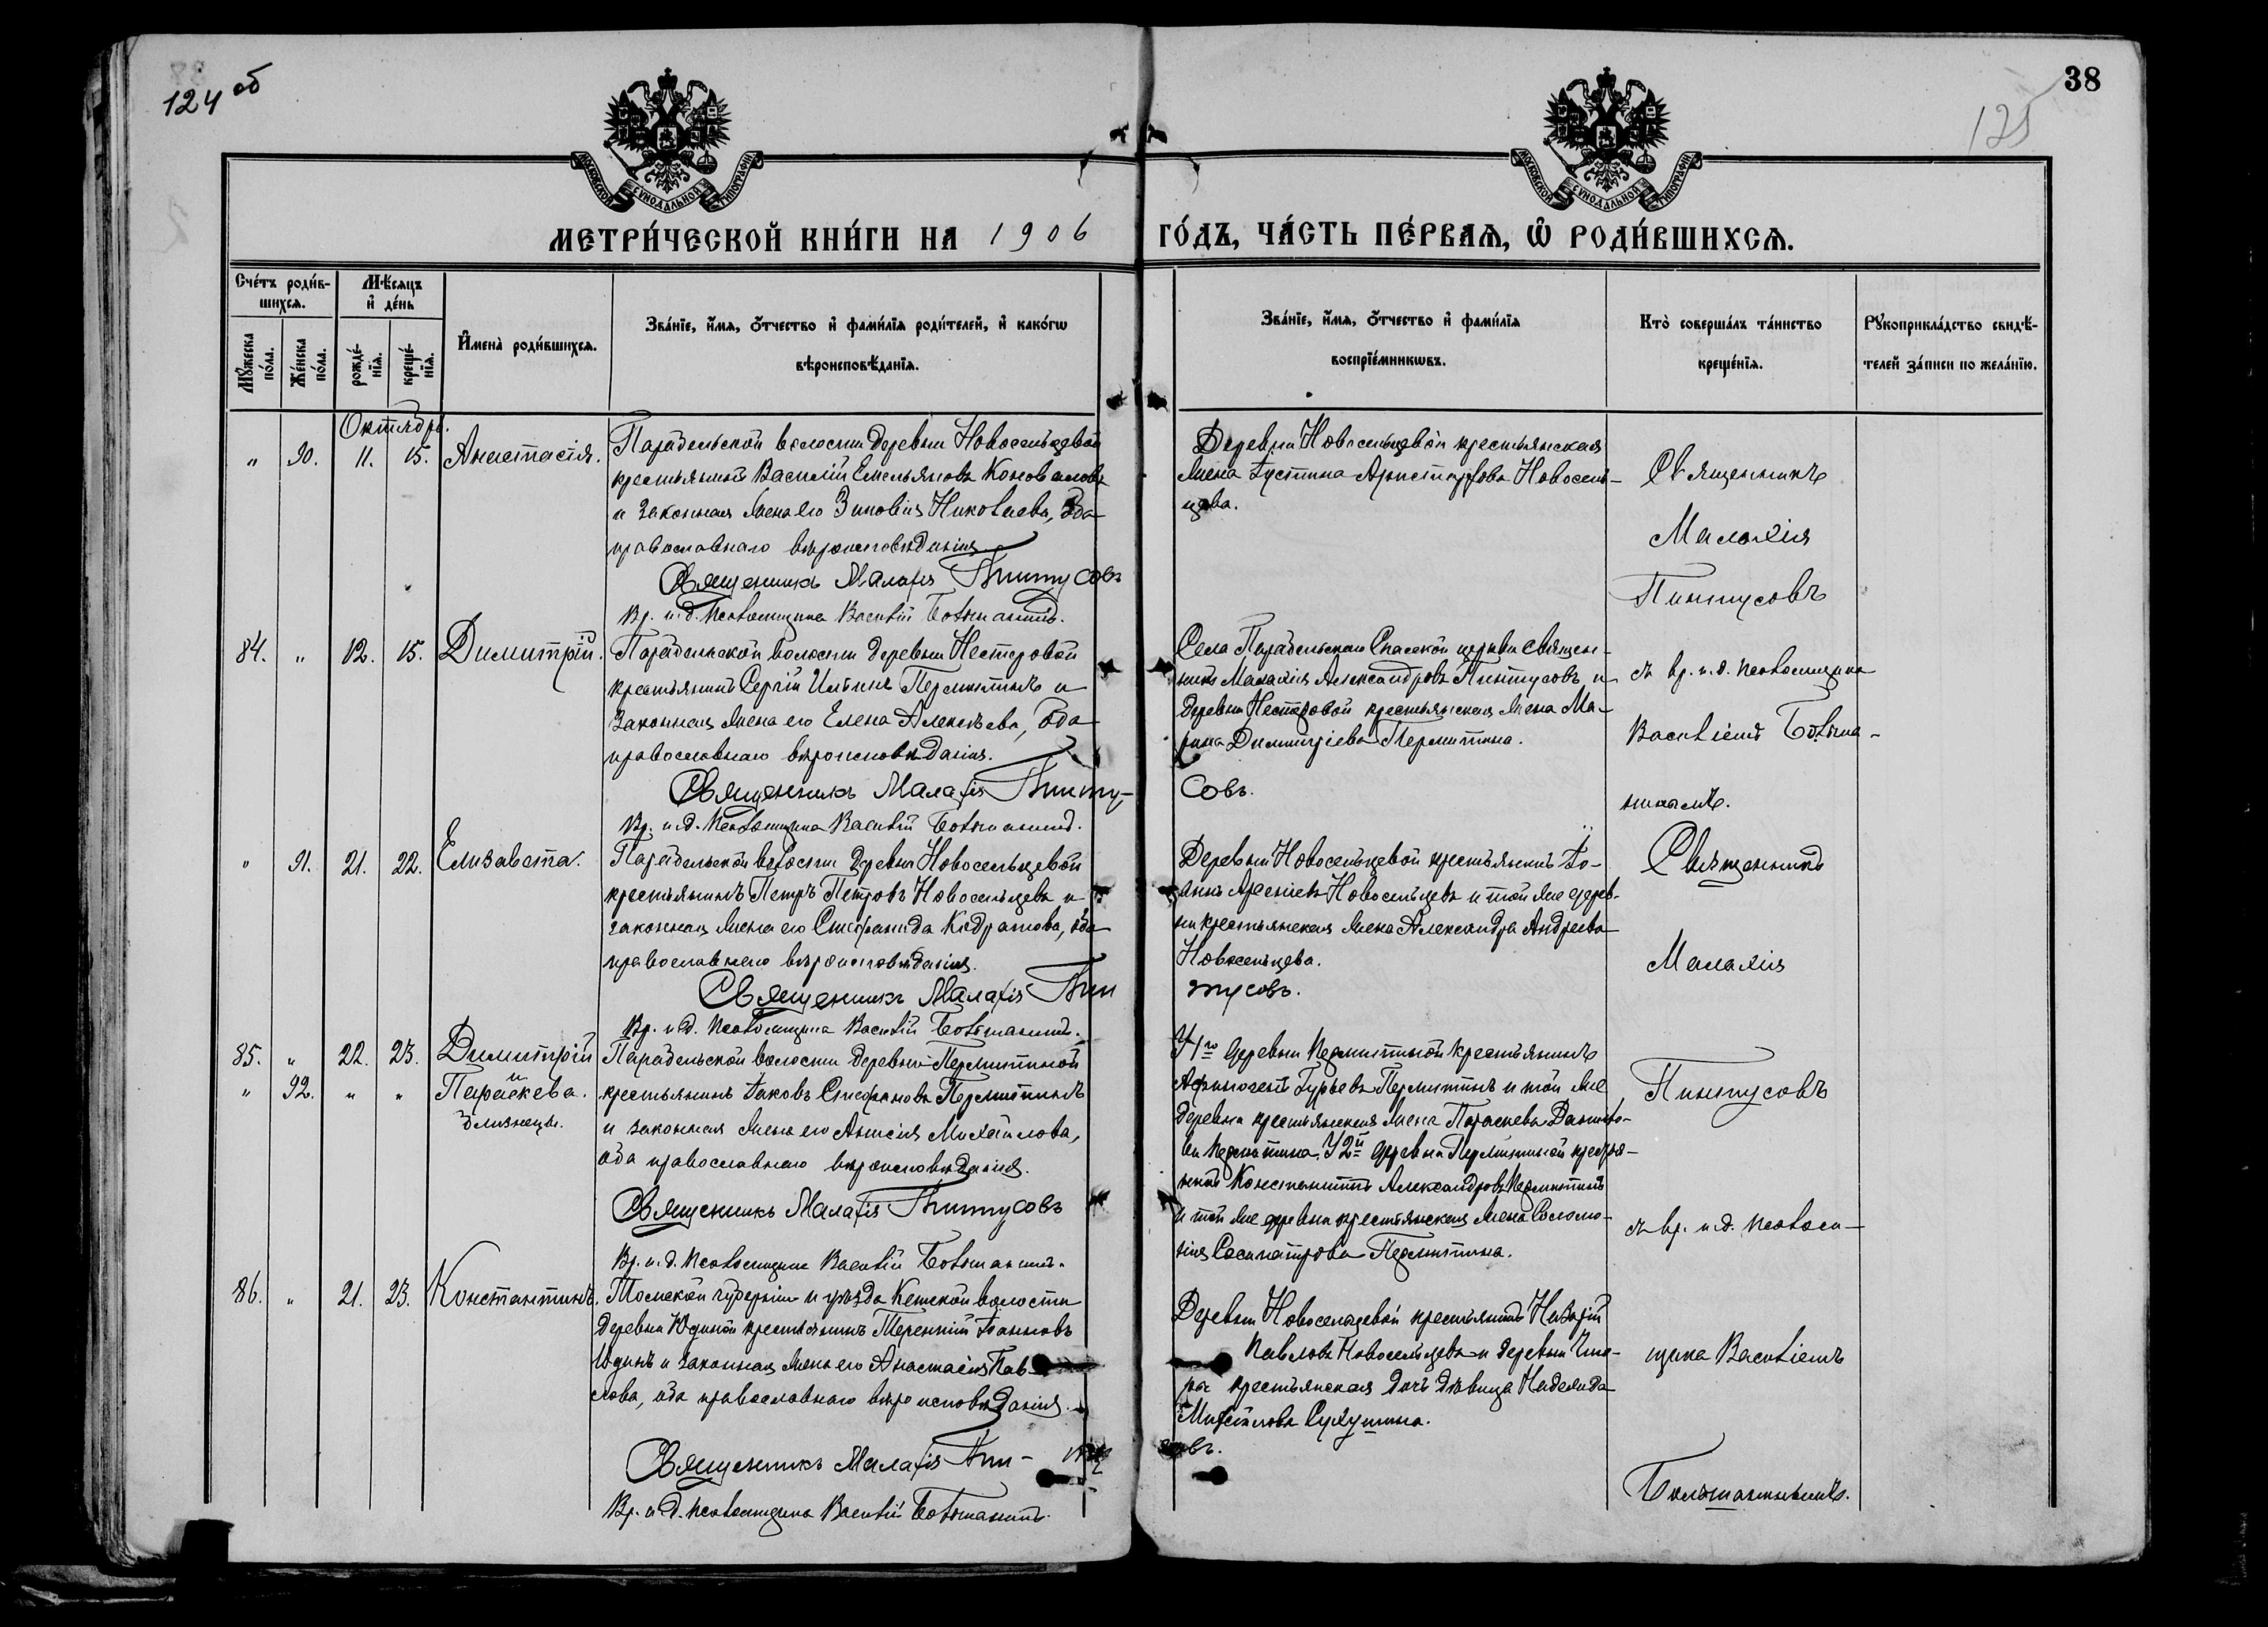 124 об
38
125
МОСКОВСКОЙ СѴНОДАЛЬНОЙ ТИПОГРАФІИ
МОСКОВСКОЙ СѴНОДАЛЬНОЙ ТИПОГРАФІИ
МЕТРИ́ЧЕСКОЙ КНИ́ГИ НА 1906 ГО́ДЪ, ЧА́СТЬ ПЕ́РВАѦ, Ѡ҆ РОДИ́ВШИХСѦ.
Сче́тъ роди́в-
шихсѧ.
Мꙋ́жеска по́ла.
Же́нска по́ла.
Мѣ́сѧцъ
и҆ де́нь
рожде́-
нїѧ.
креще́-
нїѧ.
И҆мена̀ роди́вшихсѧ.
Зва́нїе, и҆́мѧ, ѻ҆́тчество и҆ фами́лїѧ роди́телей, и҆ како́гѡ
вѣроисповѣ́данїѧ.
Зва́нїе, и҆́мѧ, ѻ҆́тчество и҆ фами́лїѧ
воспрїе́мникѡвъ.
Кто̀ соверша́лъ та́инство
креще́нїѧ.
Рꙋкоприкла́дство свидѣ́-
телей за́писи по жела́нїю.
Октябрь.
" 90. 11. 15. Анастасія.
Парабельской волости деревни Новосельцевой
крестьянинъ Василій Емельяновъ Коноваловъ
и законная жена его Зиновія Николаева, оба
православнаго вѣроисповѣданія
Священникъ Малахія Пинтусовъ
Вр. и. д. псаломщика Василій Большанинъ.
Деревни Новосельцевой крестьянская
жена Іустина Новосель-
цева.
Священникъ
Малахія
Пинтусовъ
84. " 12. 15. Димитрій.
Парабельской волости деревни Нестеровой
крестьянинъ Сергій Ильинъ Пермитинъ и
законная жена его Елена Алексѣева, оба
православнаго вѣроисповѣданія.
Священникъ Малахія Пинту-
совъ.
Вр. и. д. псаломщика Василій Большанинъ.
Села Парабельскаго Спасской церкви священ-
никъ Малахія Александровъ Пинтусовъ и
деревни Нестеровой крестьянская жена Ма-
рина Димитріева Пермитина.
съ вр. и. д. псаломщика
Василіемъ Больша-
нинымъ.
" 91. 21. 22. Елизавета.
Парабельской волости деревни Новосельцевой
крестьянинъ Петръ Петровъ Новосельцевъ и
законная жена его Стефанида Кодратова, оба
православнаго вѣроисповѣданія.
Священникъ Малахія Пин
тусовъ.
Вр. и. д. псаломщика Василій Большанинъ.
Деревни Новосельцевой крестьянинъ Іо-
аннъ Арсеніевъ Новосельцевъ и той же дерев-
ни крестьянская жена Александра Андреева
Новосельцева.
Священникъ
Малахія
85. " 22. 23. Димитрій
и
" 92. " " Параскева.
близнецы.
Парабельской волости деревни Пермитиной
крестьянинъ Іаковъ Стефановъ Пермитинъ
и законная жена его Анисія Михайлова,
оба православнаго вѣроисповѣданія.
Священникъ Малахія Пинтусовъ
Вр. и. д. псаломщика Василій Большанинъ.
У 1го деревни Пермитиной крестьянинъ
Афиногенъ Гурьевъ Пермитинъ и той же
деревни крестьянская жена Параскева Данило-
ва Пермитина. У 2й деревни Пермитиной крестья-
нинъ Константинъ Александровъ Пермитинъ
и той же деревни крестьянская жена Соломо-
нія Сосипатрова Пермитина.
Пинтусовъ
съ вр. и. д. псалом-
86. " 21. 23. Константинъ.
Томской губерніи и уѣзда Кетской волости
деревни Юдиной крестьянинъ Терентій Іоанновъ
Юдинъ и законная жена его Анастасія Пав-
лова, оба православнаго вѣроисповѣданія.
Священникъ Малахія Пин-
Вр. и. д. псаломщика Василій Большанинъ.
Деревни Новосельцевой крестьянинъ Назарій
Павловъ Новосельцевъ и деревни
крестьянская дочь дѣвица Надежда
Михайлова Сухушина.
щика Василіемъ
Большанинымъ.